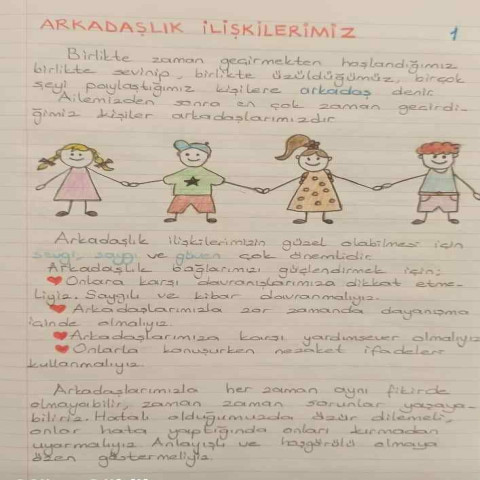 ARKADAŞLIK İLİŞKİLERİMİZ
1
Birlikte zaman geçirmekten hoşlandığımız
birlikte sevinip, birlikte üzüldüğümüz, birçok
şeyi paylaştığımız kişilere arkadaş denir.
Ailemizden sonra en çok zaman geçirdi-
ğimiz kişiler arkadaşlarımızdır.
Arkadaşlık ilişkilerimizin güzel olabilmesi için
sevgi, saygı ve güven çok önemlidir.
Arkadaşlık bağlarımızı güçlendirmek için;
Onlara karşı davranışlarımıza dikkat etme-
liyiz. Saygılı ve kibar davranmalıyız.
Arkadaşlarımızla zor zamanda dayanışma
içinde olmalıyız.
Arkadaşlarımıza karşı yardımsever olmalıyız
Onlarla konuşurken nezaket ifadeleri
kullanmalıyız.
Arkadaşlarımızla her zaman aynı fikirde
olmayabilir, zaman zaman sorunlar yaşaya-
biliriz. Hatalı olduğumuzda özür dilemeli,
onlar hata yaptığında onları kırmadan
uyarmalıyız. Anlayışlı ve hoşgörülü olmaya
özen göstermeliyiz.